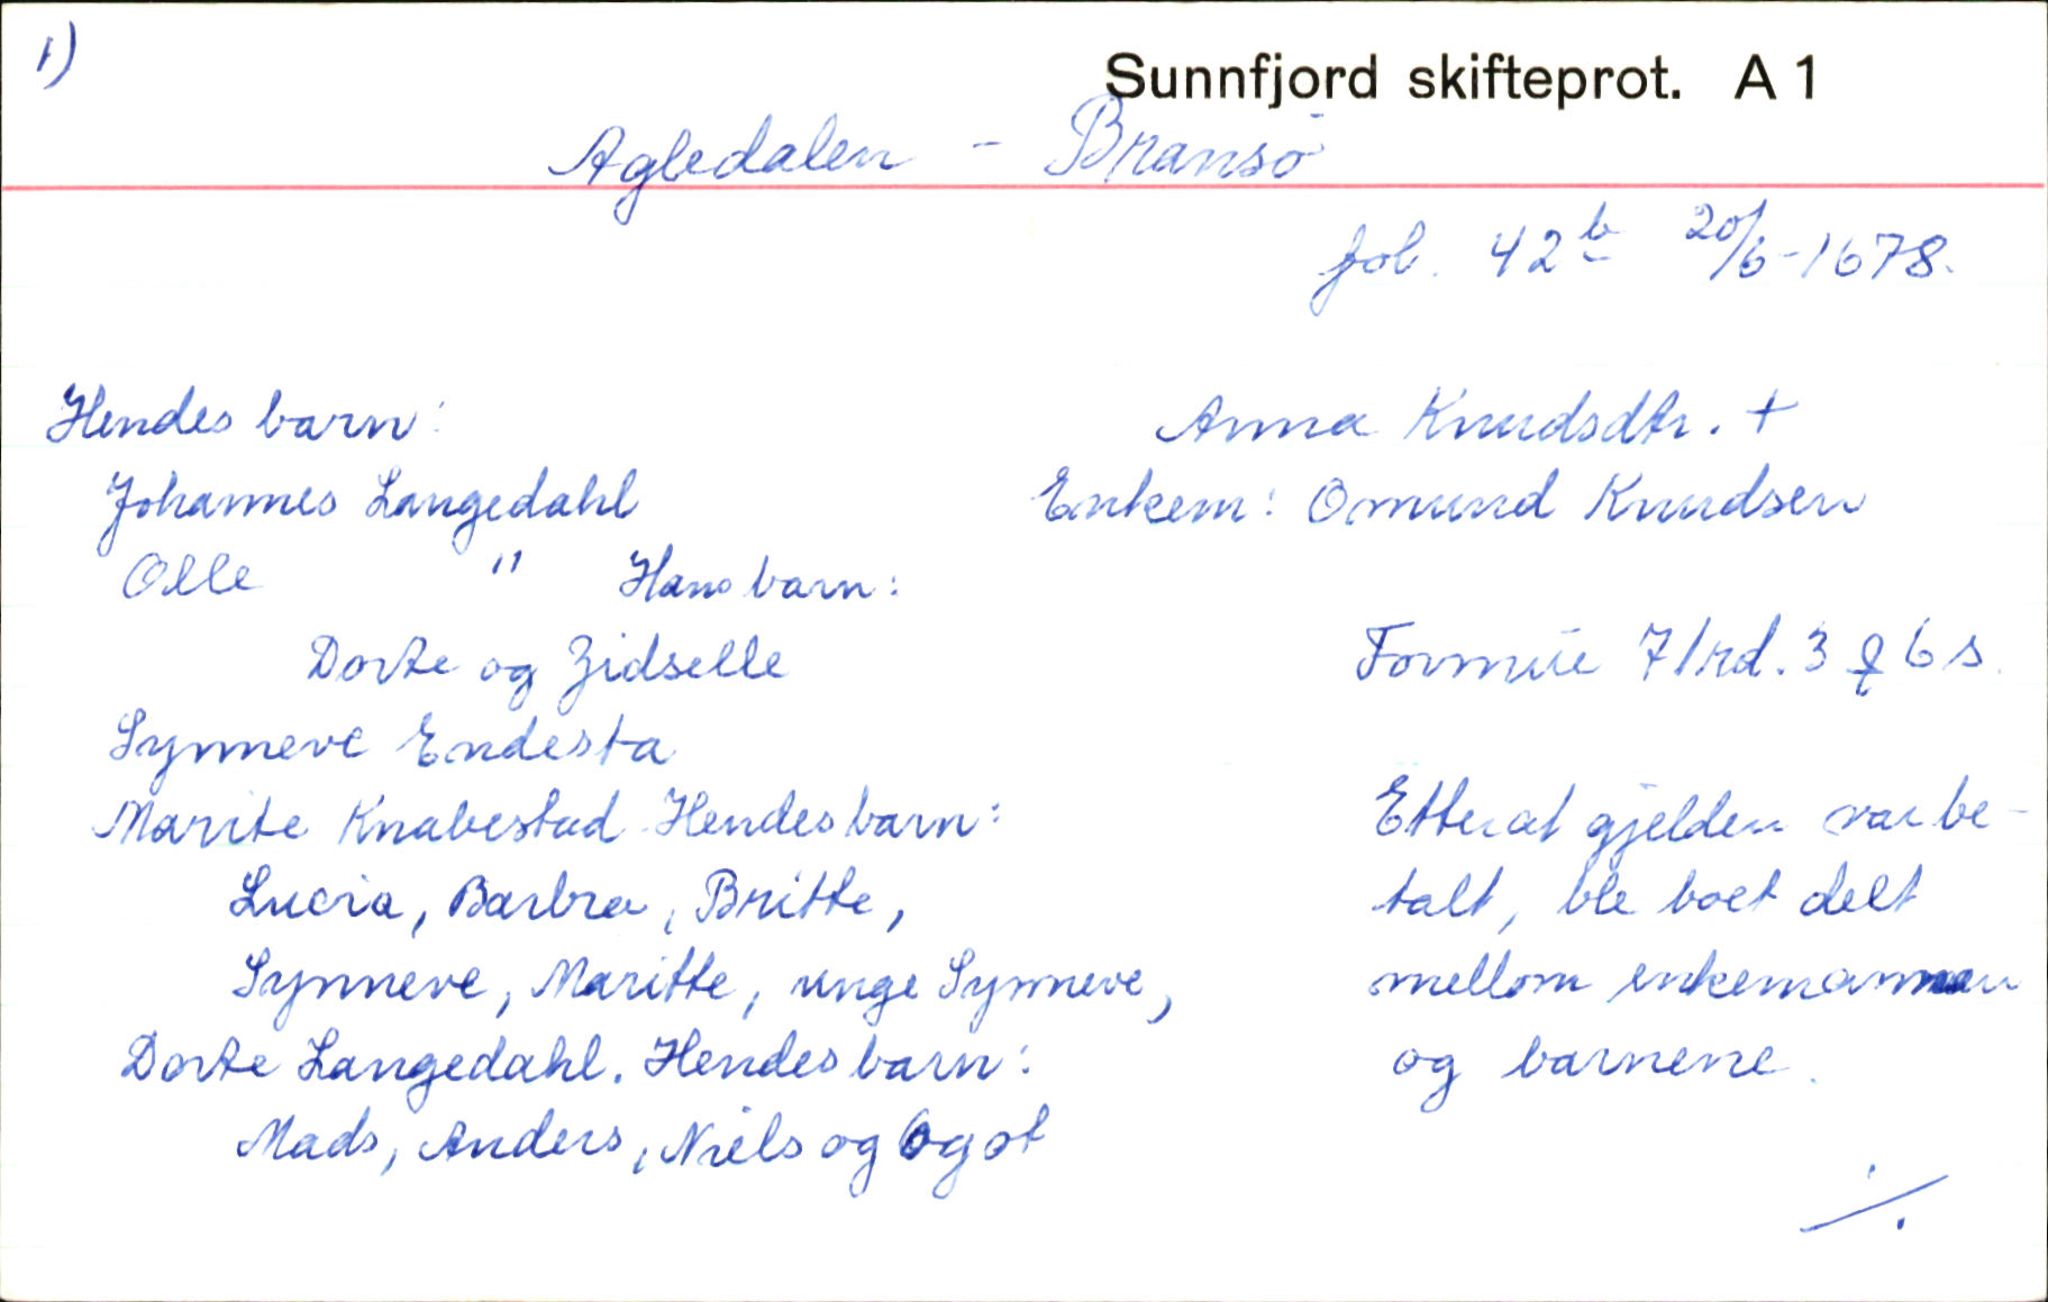 1)
Sunnfjord skifteprot. A 1
Agledalen - Bransø
fol. 42 b 20/6-1678.
Hendes barn:
Johannes Langedahl
Olle " Hans barn:
Dorte og Zidselle
Synneve Endesta
Marite Knabestad Hendes barn:
Lucia, Barbra, Britte,
Synneve, Maritte, unge Synneve,
Dorte Langedahl. Hendes barn:
Mads, Anders, Niels og Ogot
Anna Knudsdtr. +
Enkem: Omund Knudsen
Formue 71rd. 3 ꝗ 6 s.
Etterat gjelden var be-
talt, ble boet delt
mellom enkemannen
og barnene.
./.